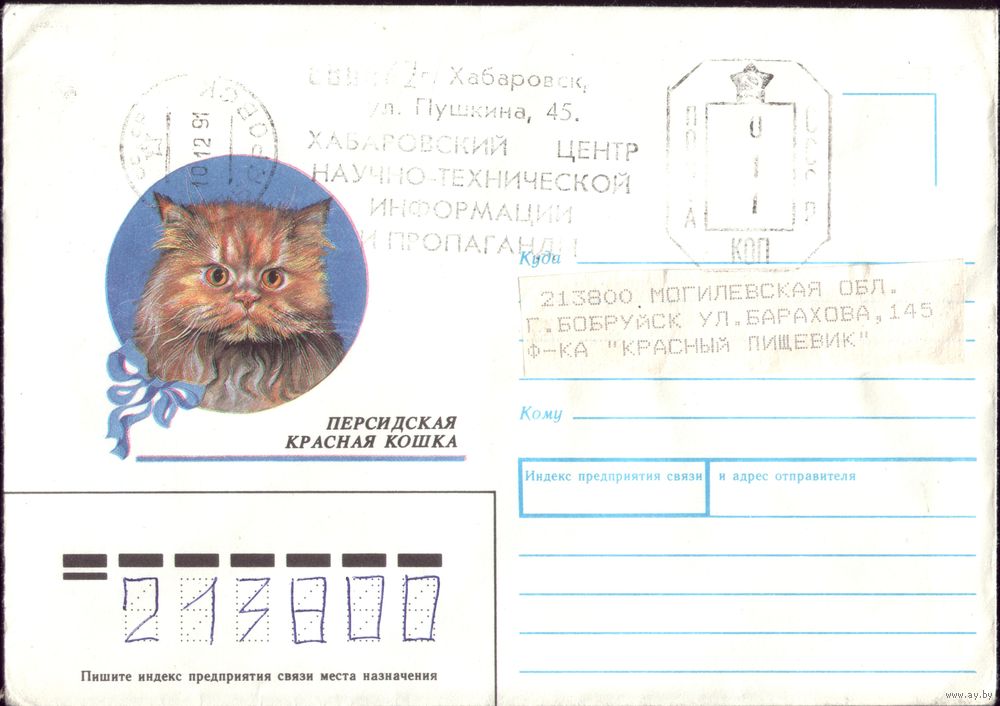 г. Хабаровск,
ул. Пушкина, 45.
ХАБАРОВСКИЙ ЦЕНТР
НАУЧНО-ТЕХНИЧЕСКОЙ
ИНФОРМАЦИИ
И ПРОПАГАНДЫ
10 12 91
ПОЧТА
СССР
011
КОП
Куда
213800 МОГИЛЕВСКАЯ ОБЛ.
Г.БОБРУЙСК УЛ.БАРАХОВА,145
Ф-КА "КРАСНЫЙ ПИЩЕВИК"
Кому
ПЕРСИДСКАЯ
КРАСНАЯ КОШКА
Индекс предприятия связи и адрес отправителя
213800
Пишите индекс предприятия связи места назначения
www.ay.by